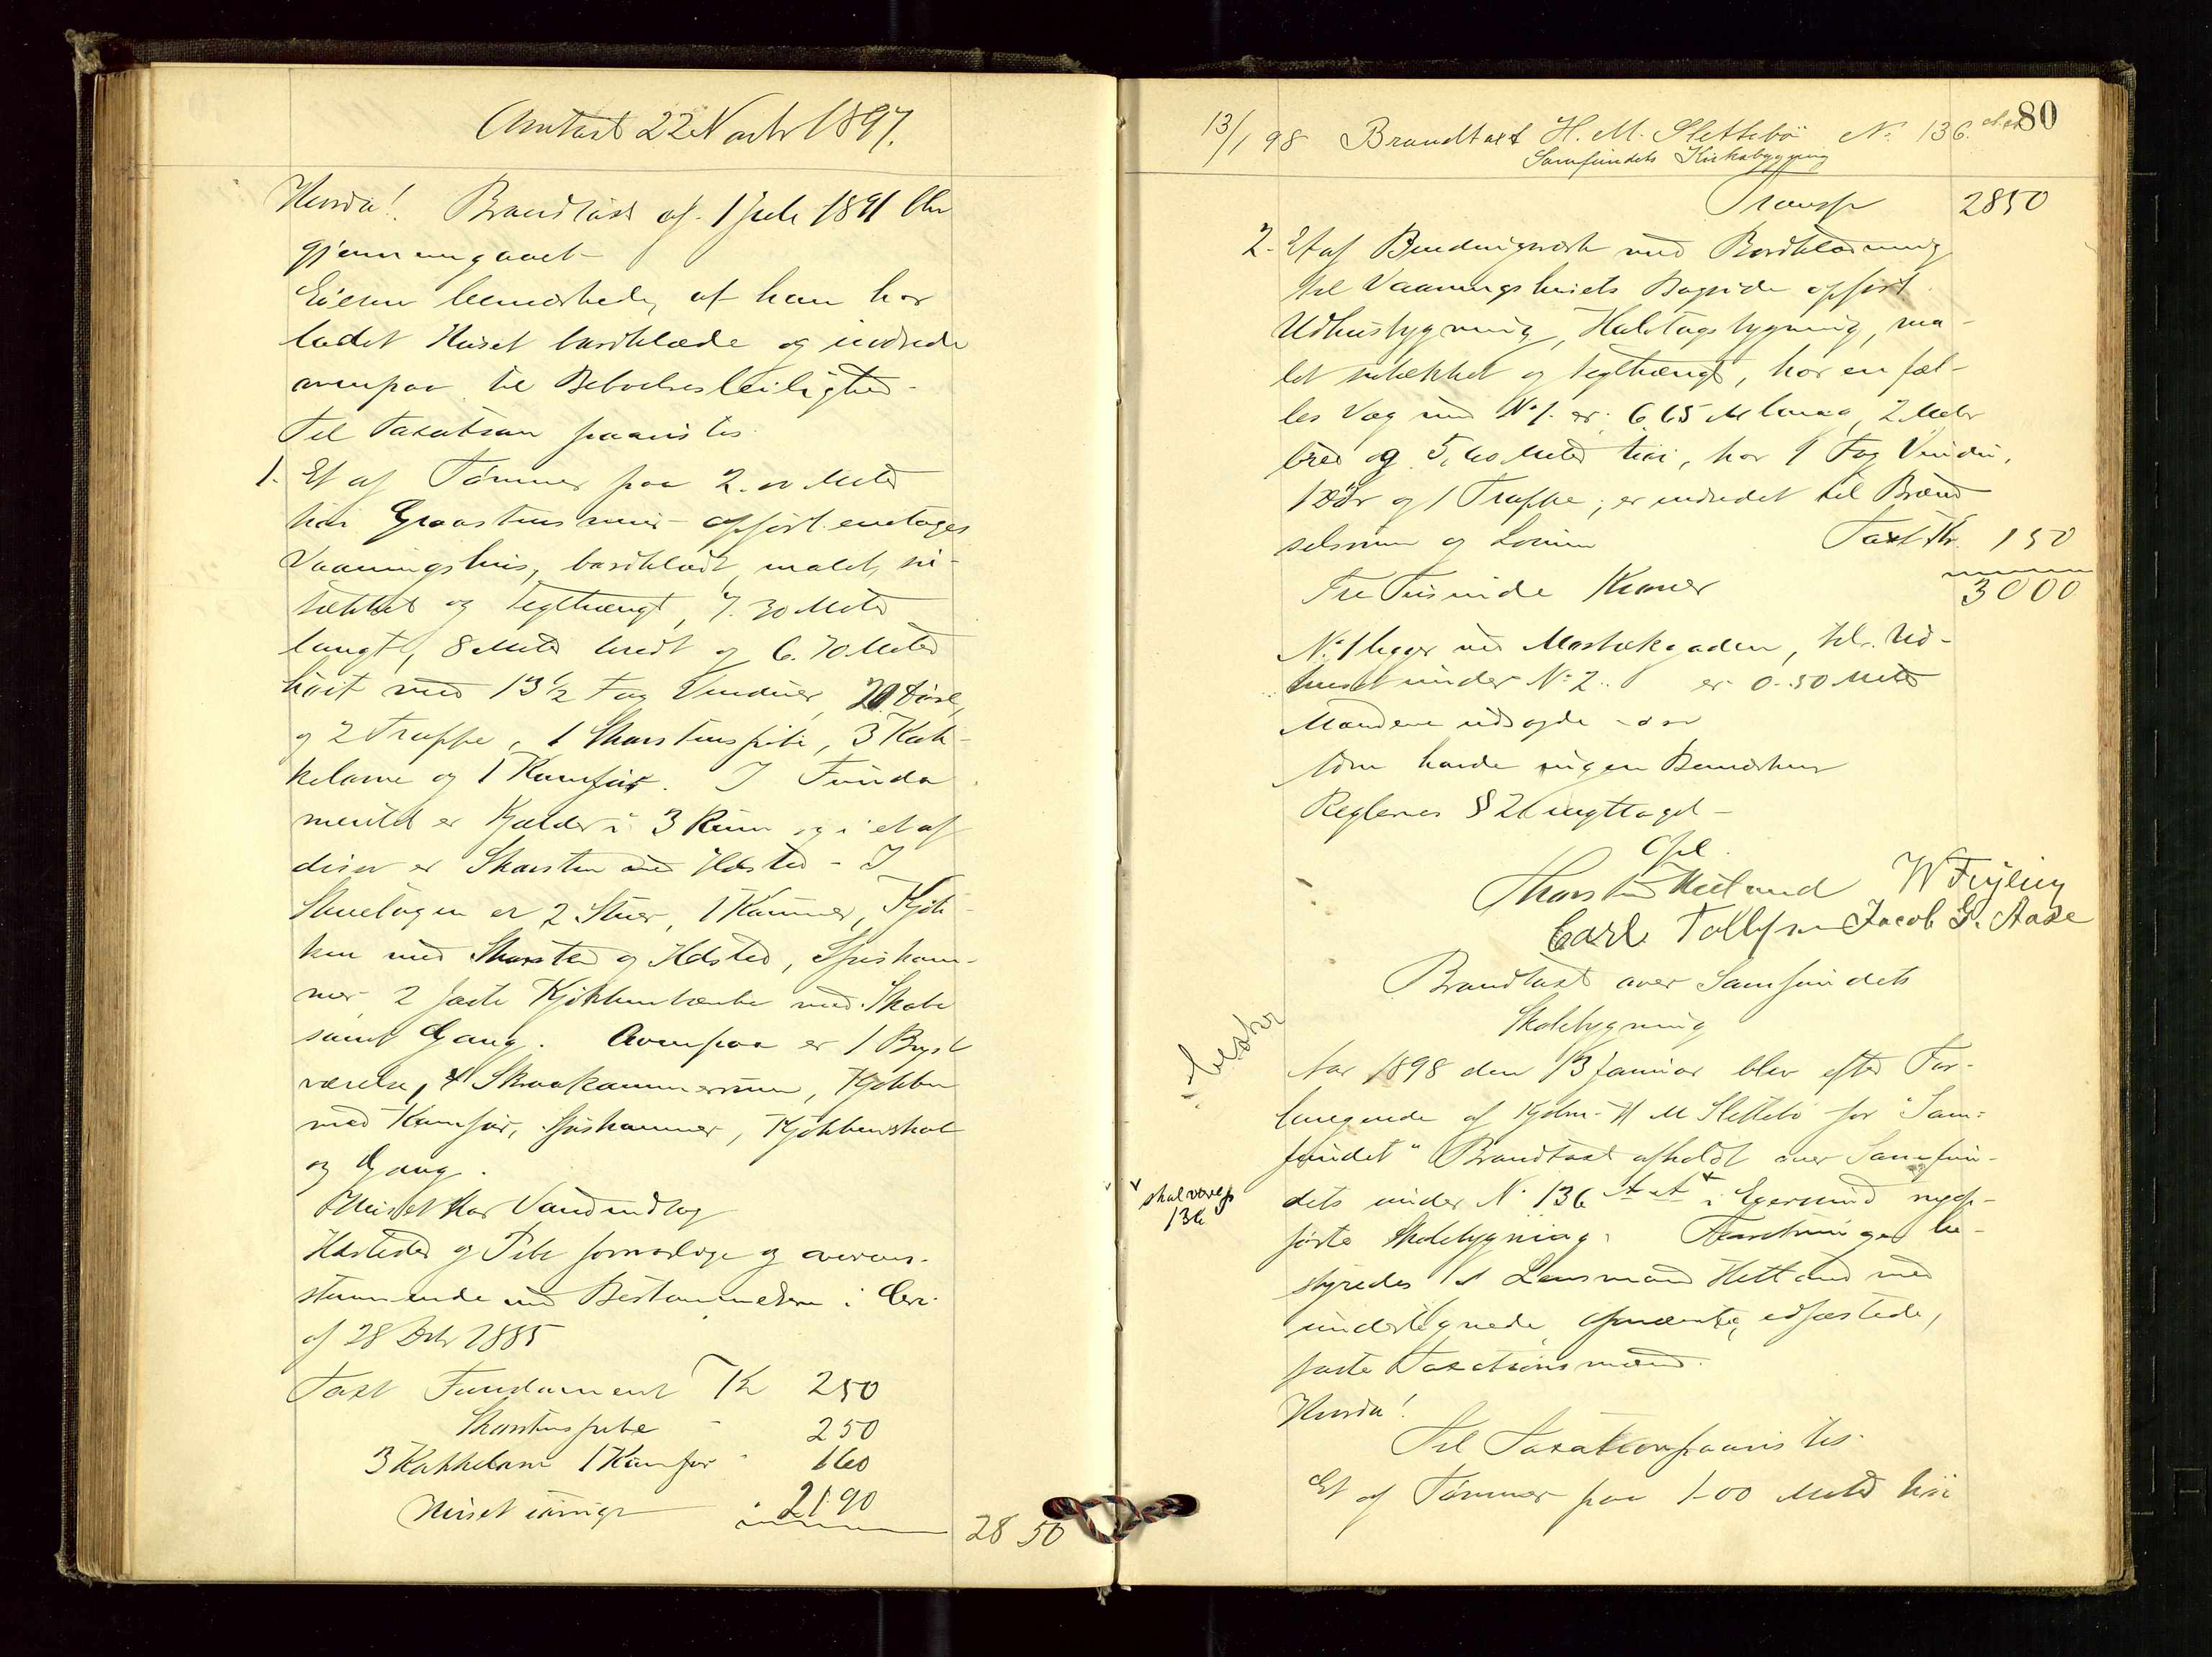 Omtaxt 22 Novbr 1897.
Hvorda! Brandtaxt af 1 Juli 1891 blev
gjennemgaaet
Eieren bemærkede, at han har
ladet Huset bordklæde og indrede
ovenpaa til Beboelsesleilighed.
Til Taxation paavistes
1. Et af Tømmer paa 2.00 Meter
høi Graastensmur opført enetages
Vaaningshus, bordklædt, malet, su-
tækket og teglhængt, 7.30 Meter
langt, 8 Meter bredt og 6.70 Meter
høit med 13 1/2 Fag Vinduer, 20 Døre,
og 2 Trappe, 1 Skorstenspibe, 3 Kak-
kelovne og 1 Komfur. I Funda
mentet er Kjælder i 3 Rum og i et af
disse er Skorsten med Ildsted - I
Stueetagen er 2 Stuer, 1 Kammer, Kjøk-
ken med Skorsten og Ildsted, Spiskam-
mer 2 faste Kjøkkenbænke med Skabe
samt Gang. Ovenpaa er 1 Bryst
værelse, 4 Skraakammerrum, Kjøkken
med Komfur, Spiskammer, Kjøkkenskab
og Gang.
Huset har Vandindlæg
Ildsteder og Pibe forsvarlige og overens-
stemmende med Bestemmelserne i Circ.
af 28 Dcbr 1885
Taxt Fundament Kr 250
Skorstenspibe " 250
3 Kakkelovne 1 Komfur " 160
Huset iøvrigt " 2190
2850
80
13/1 98 Brandtaxt H. M. Slettebö No 136.
Samfundets Kirkebygning
Transp 2850
2. Et af Bindingsværk med Bordklædning
til Vaaningshusets Bagside opført
Udhusbygning, Halvtagsbygning, ma-
let sutækket og teglhængt, har en fæl-
les Væg med No 1. er 6,65 M lang, 2 Meter
bred og 5,40 Meter høi, har 1 Fag Vindu,
1 Dør og 1 Trappe; er indredet til Brænd
selsrum og Taxt Kr. 150
Tre Tusinde Kroner 3000
No 1 ligger ved Mosbækgaden, til Ud-
huset under No 2. er 0.50 Meter
Mændene udsagde
som havde ingen Bemærkn
Reglernes § 21 iagttaget -
Opl.
Thorsten Hetland W Feyling
Carl Tollefsen Jacob G. Aase
Brandtaxt over Samfundets
Skolebygning
Aar 1898 den 13 Januar blev efter For-
langende af Kjøbm. H M Slettebö for "Sam-
fundet" Brandtaxt afholdt over Samfun-
dets under No 136 i Egersund nyop-
førte Skolebygning. Forretningen be-
styredes af Lensmand Hetland med
undertegnede, opnævnte, edfæstede,
faste Taxationsmænd.
Hvorda!
Til Taxation paavistes
Et af Tømmer paa 1.00 Meter høi
skal være
136